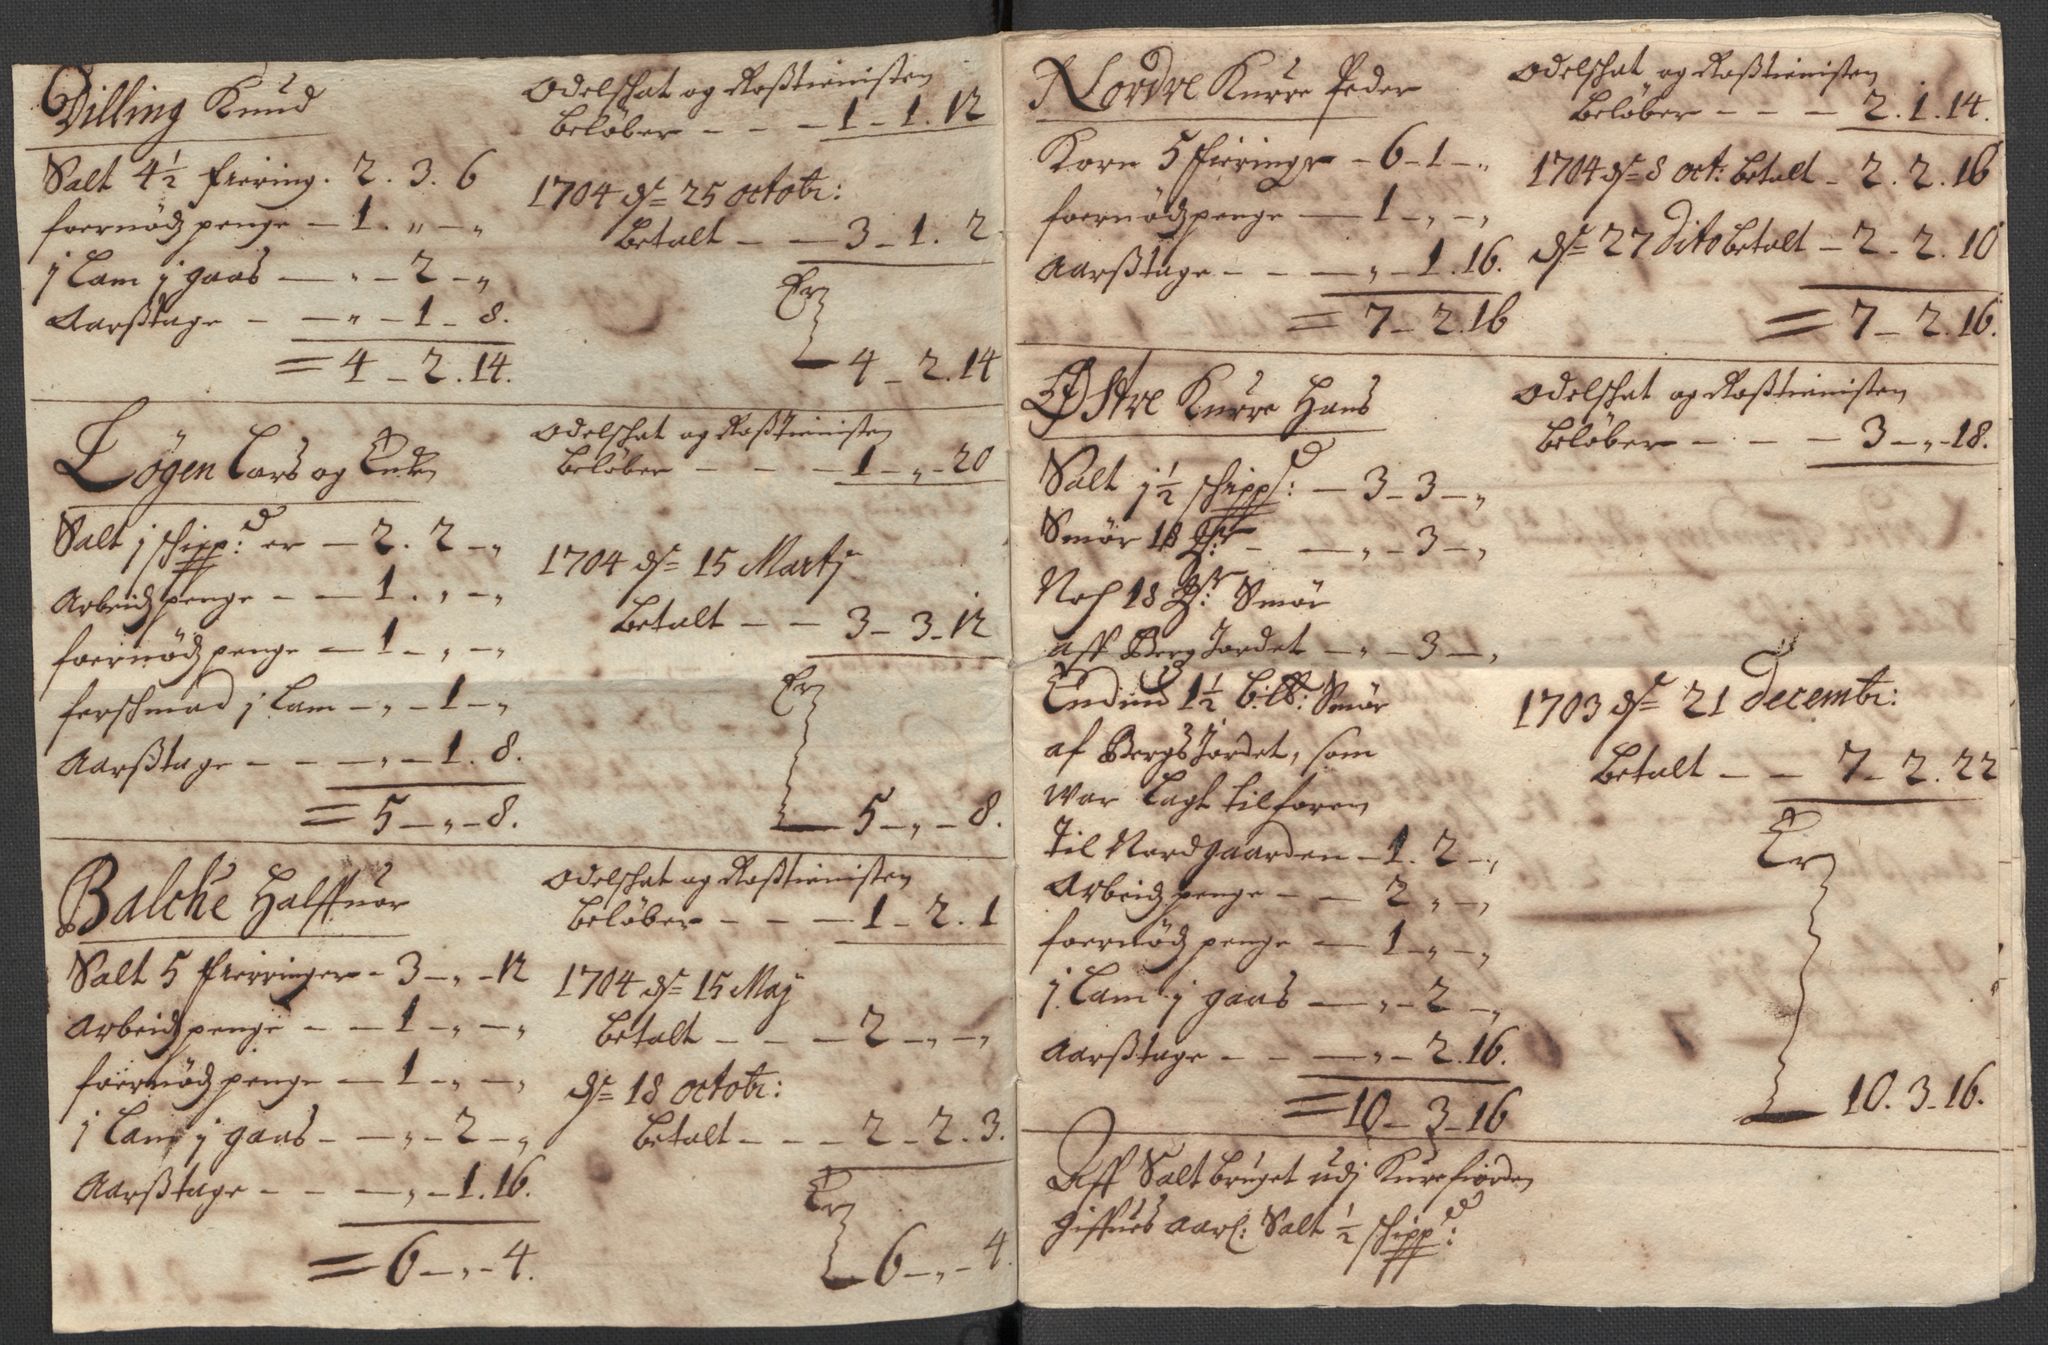 Dilling Knud
Salt 4½ fiering. 2. 3. 6
foernødz penge — 1. „ — „
j Lam j gaas — „ — 2 — „
Aarßtage — — „ — 1 — 8.
= 4 — 2. 14.
Odelschat og Roßtienisten
beløber — — — 1 — 1. 12
1704 dn 25 octobr:
betalt — — 3 — 1. 2
Er
4 — 2. 14
Løgen Lars og Enken
Salt j schippd: er — 2. 2 — „
Arbeidz penge — — 1. „ — „
foernødz penge — 1 — „ — „
ferschmad j Lam — „ — 1 — „
Aarßtage — — — „ — 1. 8.
= 5 — „ — 8.
Odelschat og Roßtienisten
beløber — — — 1 — „ — 20
1704 dn 15 Martj
betalt — — 3 — 3 — 12
Er
5 — „ — 8.
Balche Halffuor
Salt 5 fierringer — 3 — „ — 12
Arbeidz penge — — 1 — „ — „
foernødz penge — 1 — „ — „
j Lam j gaas — — „ — 2 — „
Aarßtage — — — „ — 1. 16.
= 6 — „ — 4.
Odelschat og Roßtienisten
beløber — — — 1 — 2. 1
1704 dn 15 Maj
betalt — — — 2 — „ — „
dn 18 octobr:
betalt — — — 2 — 2. 3.
Er
6 — „ — 4.
Nordre Kurre Peder
Korn 5 fieringer — 6 — 1 — „
foernødz penge — 1 — „ — „
Aarßtage — — — „ — 1. 16.
= 7 — 2. 16
Odelschat og Roßtienisten
beløber — — — 2. 1. 14.
1704 dn 8 oct: betalt — 2. 2. 16
dn 27 Dito betalt — 2 — 2. 10
= 7 — 2. 16.
Østre Kurre Hans
Salt j½ schippd: — 3 — 3 — „
Smør 18 — — „ — 3 — „
Noch 18 Smør
aff Berg Jordet — „ — 3 — „
Endnu 1½ b: Smør
af Bergs Jordet, som
war Lagt tilforen
til Nordgaarden — 1. 2 — „
Arbeidz penge — — 2 „ — „
foernødz penge — 1 „ — „
j Lam j gaas — „ — 2 — „
Aarßtage — — — „ — 2. 16.
= 10 — 3 — 16
Odelschat og Roßtienisten
beløber — — — 3 — „ — 18.
1703 dn 21 Decembr:
betalt — — 7 — 2. 22
Er
10. 3 — 16.
Aff Salt bruget udj Kurefiorden
giffues aarl: Salt ½ schippd: